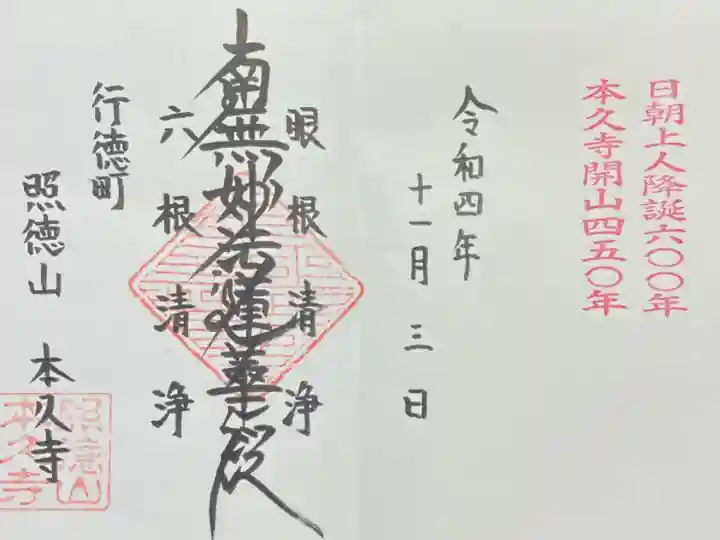 日朝上人降誕六〇〇年
本久寺開山四五〇年
令和四年
十一月三日
眼根清浄
南無妙法蓮華経
六根清浄
行徳町
照徳山 本久寺
照徳山
本久寺